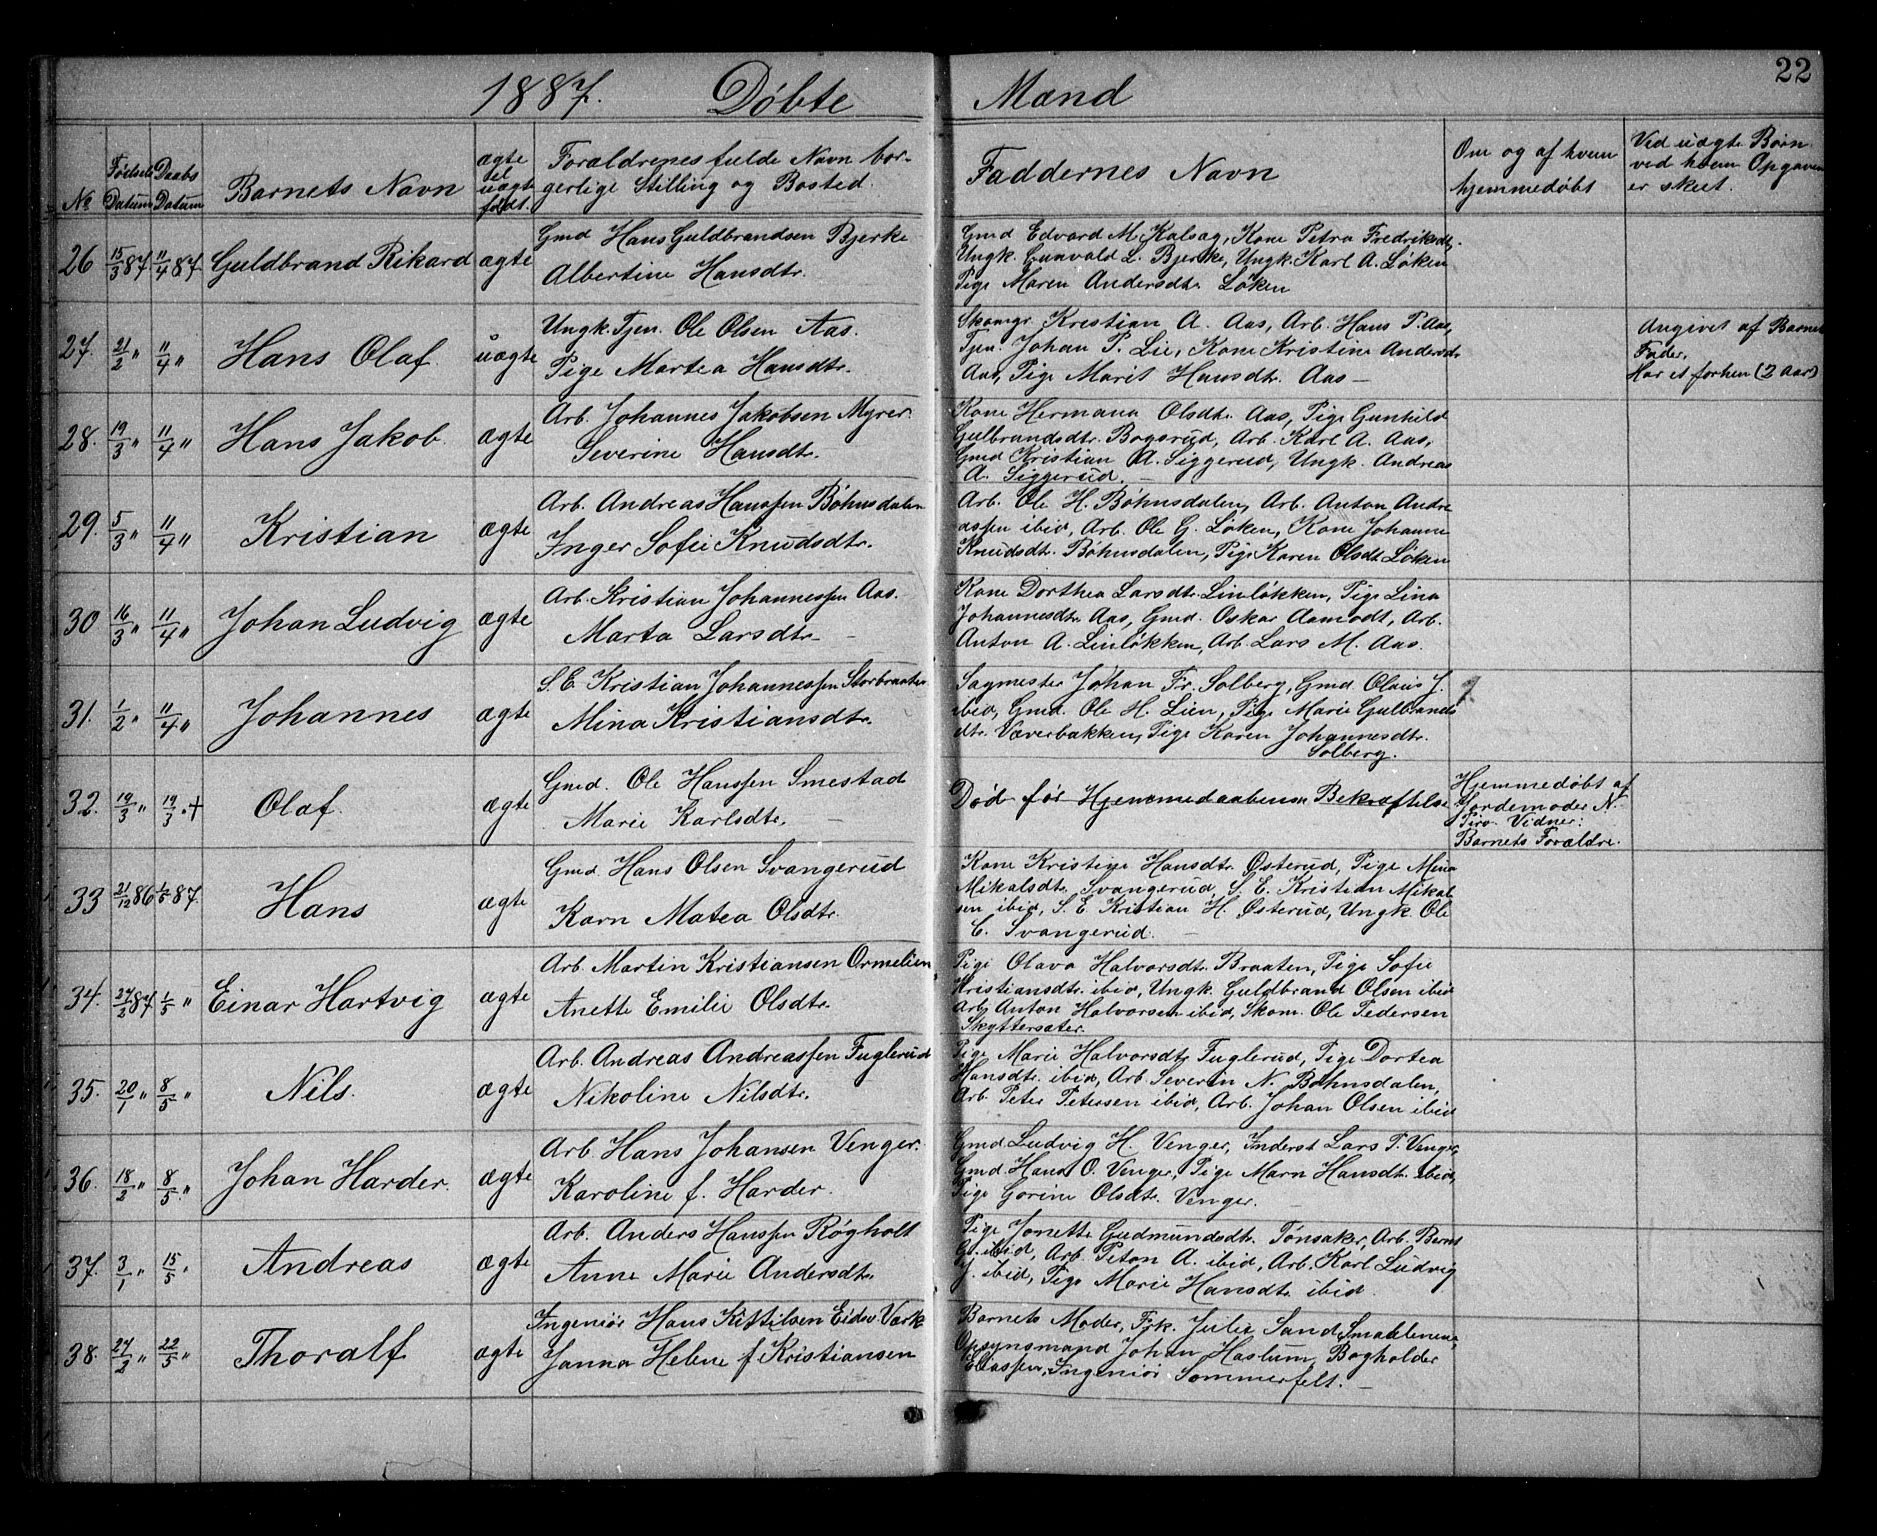 1887. Døbte Mænd 22
No Fødsels Datum Daabs Datum Barnets Navn ægte el uægte født. Forældrenes fulde Navn borgerlige Stilling og Bosted. Faddernes Navn Om og af hvem hjemmedøbt Ved uægte Børn ved hvem Opgaven er skeet.
26 15/3 87 11/4 87 Guldbrand Rikard ægte
Gmd Hans Guldbrandsen Bjerke
Albertine Hansdtr.
Gmd Edvard M. Kalsag, Kone Petra Fredriksdtr.
Ungk. Gunvald L. Bjerke, Ungk. Karl A. Løken
Pige Maren Andersdtr. Løken
27. 21/2 " 11/4 " Hans Olaf. uægte
Ungk. Tjen. Ole Olsen Aas.
Pige Martea Hansdtr.
Skomgr. Kristian A. Aas, Arb. Hans P. Aas,
Tjen. Johan P. Lie, Kone Kristine Andersdtr
Aas, Pige Marit Hansdtr. Aas —
Angivet af Barnets
Fader.
Har et forhen (2 Aar)
28. 19/3 " 11/4 " Hans Jakob. ægte
Arb. Johannes Jakobsen Myrer.
Severine Hansdtr.
Kone Hermana Olsdtr. Aas, Pige Gunhild
Gulbrandsdtr. Bogsrud, Arb. Karl A. Aas,
Gmd Kristian A. Siggerud, Ungk. Andreas
A. Siggerud. —
29. 5/3 " 11/4 " Kristian ægte
Arb. Andreas Hanssen Bøhnsdalen
Inger Sofie Knudsdtr.
Arb. Ole H. Bøhnsdalen, Arb. Anton Andre
assen ibid, Arb. Ole G. Løken, Kone Johanne
Knudsdtr. Bøhnsdalen, Pige Karen Olsdtr Løken
30 16/3 " 11/4 " Johan Ludvig ægte
Arb. Kristian Johannessen Aas.
Marta Larsdtr. —
Kone Dorthea Larsdtr. Linløkken, Pige Lina
Johannesdtr. Aas, Gmd. Oskar Aamodt, Arb.
Anton A. Linløkken, Arb. Lars M. Aas.
31. 1/2 " 11/4 " Johannes ægte
S. E. Kristian Johannessen Storbraaten
Mina Kristiansdtr.
Sagmester Johan Fr. Solberg, Gmd. Olaus J.
ibid, Gmd. Ole H. Lien, Pige Marie Gulbrands
dtr. Væverbakken, Pige Karen Johannesdtr.
Solberg.
32. 19/3 " 19/3 . + Olaf. ægte
Gmd. Ole Hanssen Smestad
Marie Karlsdtr.
Død før Hjemmedaabens Bekræftelse.
Hjemmedøbt af
Jordemoder N.
Vidner:
Barnets Forældre.
33 21/12 86 1/5 87. Hans ægte
Gmd Hans Olsen Svangerud
Karn Matea Olsdtr.
Kone Kristine Hansdtr. Østerud, Pige Mina
Mikalsdtr. Svangerud, S. E. Kristian Mikal
sen ibid, S. E Kristian H. Østerud, Ungk. Ole
E. Svangerud. —
34. 27/2 87 1/5 " Einar Hartvig ægte
Arb. Martin Kristiansen Ormelien
Anette Emilie Olsdtr.
Pige Olava Halvorsdtr. Braaten, Pige Sofie
Kristiansdtr. ibid, Ungk. Guldbrand Olsen ibid
Arb. Anton Halvorsen ibid, Skom. Ole Pedersen
Skyttersæter.
35. 20/1 " 8/5 " Nils. ægte
Arb. Andreas Andreassen Fuglerud
Nikoline Nilsdtr.
Pige Marie Halvorsdtr. Fuglerud, Pige Dortea
Hansdtr. ibid, Arb. Severin N. Bøhnsdalen,
Arb. Peter Petersen ibid, Arb. Johan Olsen ibid
36. 18/2 " 8/5 " Johan Harder. ægte
Arb. Hans Johansen Venger.
Karoline f. Harder.
Gmd. Ludvig H. Venger, Inderst Lars P. Venger,
Gmd. Hans O. Venger, Pige Marn Hansdtr. ibid,
Pige Gorine Olsdtr. Venger. —
37. 3/1 " 15/5 " Andreas ægte
Arb. Anders Hanssen Røgholt
Anne Marie Andersdtr.
Pige Jonette Gudmundsdtr. Tønsaker, Arb. Bernt
G. ibid, Arb. Peton A. ibid, Arb. Karl Ludvig
J. ibid, Pige Marie Hansdtr. ibid.
38. 27/2 " 22/5 " Thoralf ægte
Ingeniør Hans Kittilsen Eidsv. Værk
Janna Helene f. Kristiansen
Barnets Moder, Frk. Julie Sand, Smaalenene,
Opsynsmand Johan Haslum, Bogholder
Eliassen, Ingeniør Sommerfelt. —